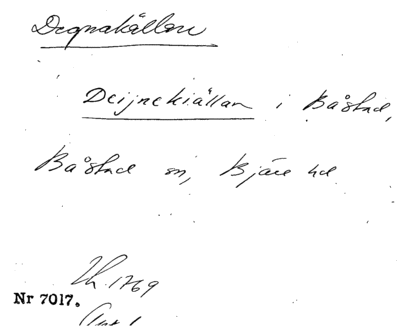 Degnakällan
Deijnekiällan i Båstad,
Båstad sn, Bjäre hd
Lh. 1769
Nr 7017.